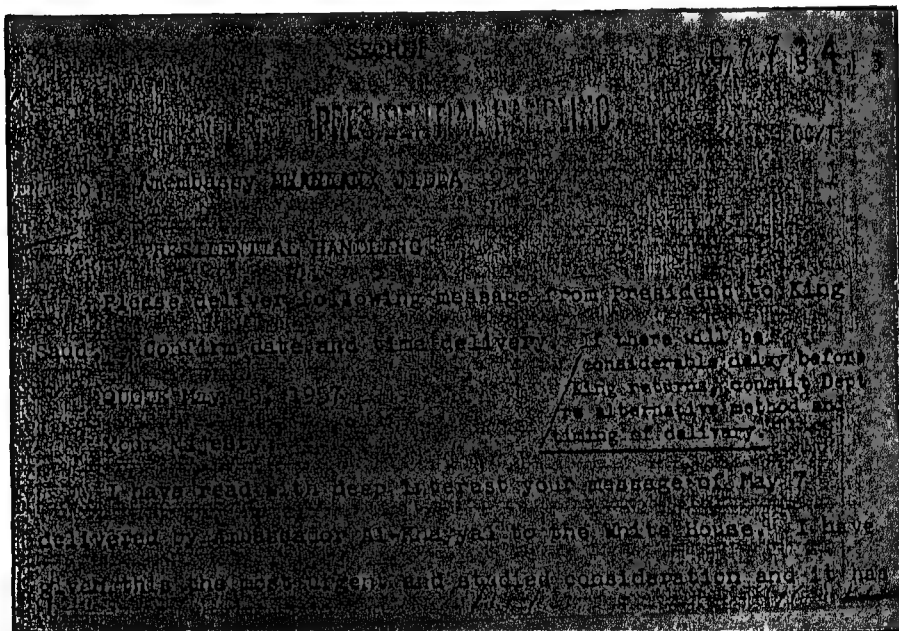 SECRET
PRESIDENTIAL HANDLING
Amembassy JIDDA
PRESIDENTIAL HANDLING
Please deliver following message from President to King
Saud. Confirm date and time delivery. If there will be
considerable delay before
King returns, consult Dept
re alternative method and
timing of delivery.
QUOTE May 1957
Your Majesty
I have read with deep interest your message of May 7
delivered by Ambassador Al-Khayyal to the White House. I have
given this the most urgent and studied consideration and it has